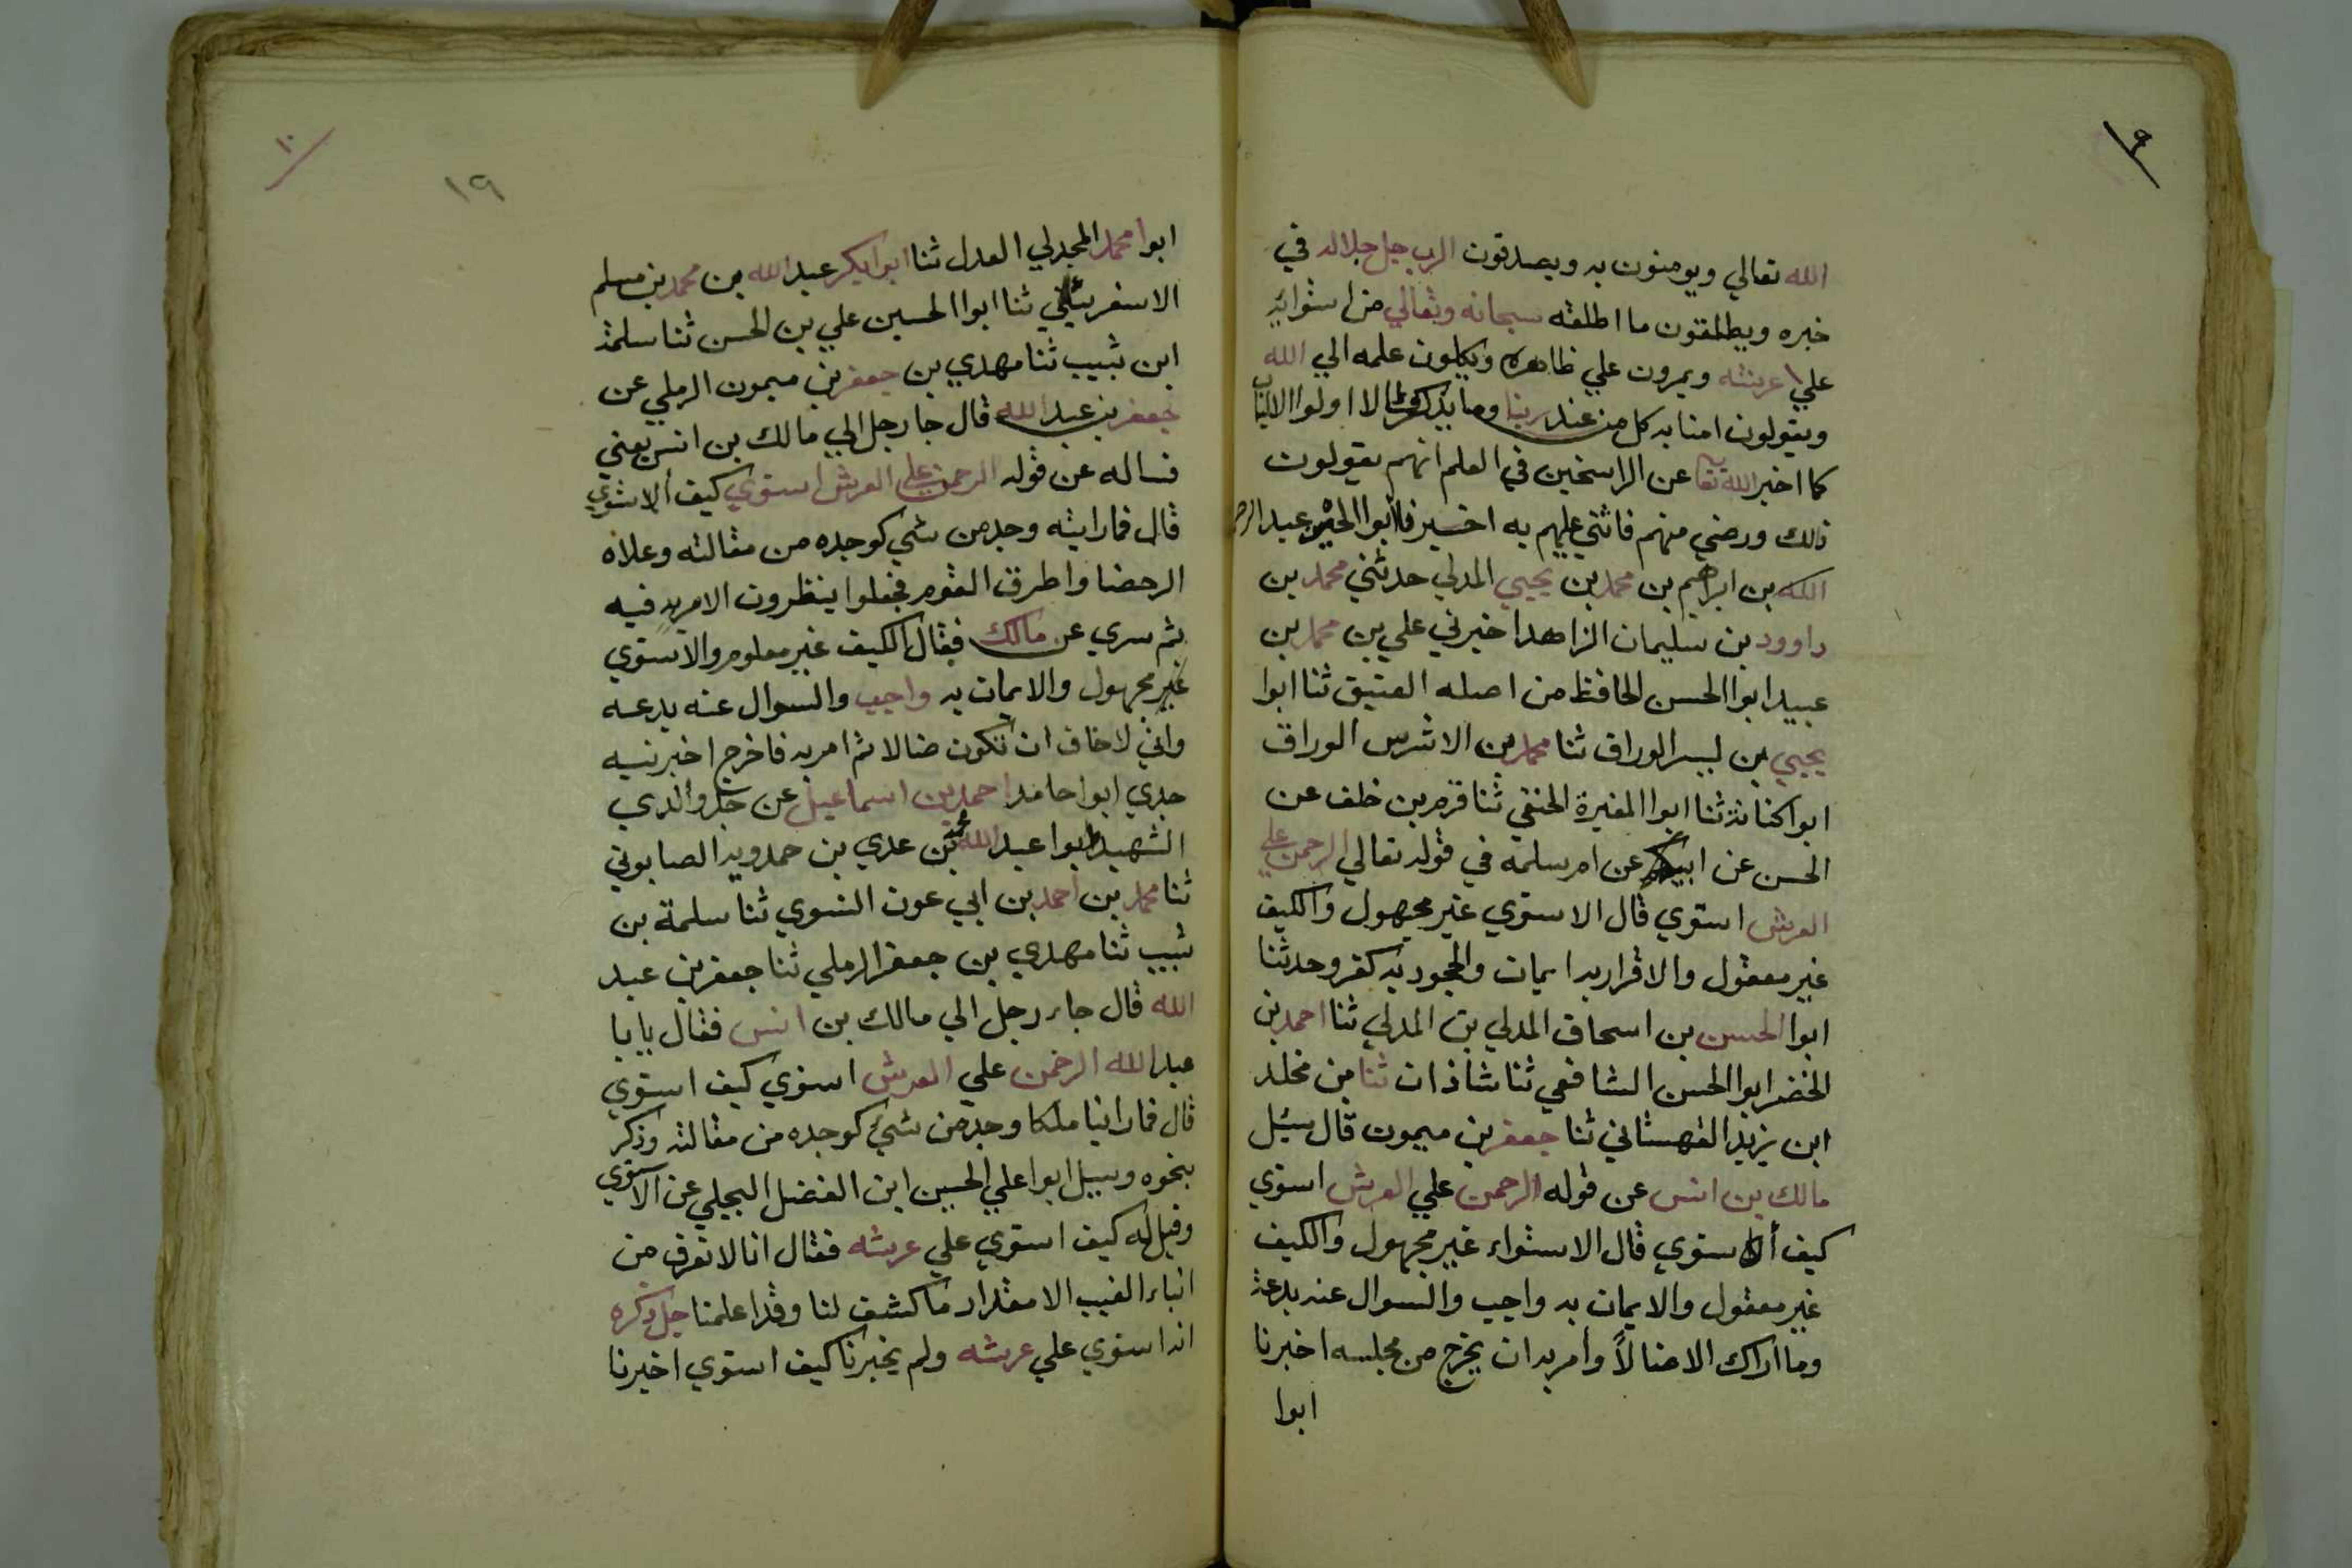 الله تعالي ويومنون به ويصدقون الرب جل جلاله في
خبره ويطلقون ما اطلقه سبحانه وتعالي من استوائه
علي عرشه ويمرون علي ظاهره ويكلون علمه الي الله
ويقولون امنا به كل من عند ربنا وما يذكر الا اولوا الالباب
كما اخبر الله تعا عن الراسخين في العلم انهم يقولون
ذلك ورضي منهم فاثني عليهم به ابوا عبد
الله بن ابراهيم بن محمد بن يحيي المدلي حدثني محمد بن
داوود بن سليمان الزاهد اخبرني علي بن محمد بن
عبيد ابوا الحسن الحافظ من اصله العتيق ثنا ابوا
يحيي بن الوراق ثنا محمد بن الاشرس الوراق
ابوا كنانة ثنا ابوا المغيرة الحنفي ثنا قرم بن خلف عن
الحسن عن عن ام سلمه في قوله تعالي الرحمن علي
العرش استوي قال الاستوي غير مجهول والكيف
غير معقول والاقرار به ايمان والجحود به كفر وحدثنا
ابوا الحسن بن اسحاق المدلي بن المدلي ثنا احمد بن
الخضر ابوا الحسن الشافعي ثنا شاذان ثنا بن مخلد
ابن يزيد القهستاني ثنا جعفر بن ميمون قال سئل
مالك بن انس عن قوله الرحمن علي العرش استوي
كيف استوي قال الاستواء غير مجهول والكيف
غير معقول والايمان به واجب والسوال عنه بدعة
وما اراك الا ضالاً وامر به ان يخرج من مجلسه اخبرنا
ابوا
١٩
١٠
ابوا محمد المجدلي العدل ثنا ابوا بكر عبد الله بن محمد بن مسلم
الاسفرئيني ثنا ابوا الحسين علي بن الحسن ثنا سلمة
ابن شبيب ثنا مهدي بن جعفر بن ميمون الرملي عن
جعفر بن عبد الله قال جا رجل الي مالك بن انس يعني
فساله عن قوله الرحمن علي العرش استوي كيف الاستوي
قال فما رايته وجد من شي كوجده من مقالته وعلاه
الرحضا واطرق القوم فجعلوا ينظرون الامر به فيه
ثم سري عن مالك فقال الكيف غير معلوم والاستوي
غير مجهول والايمان به واجب والسوال عنه بدعه
واني لاخاف ان تكون ضالا ثم امر به فاخرج اخبرنيه
جدي ابوا حامد احمد بن اسماعيل عن جد والدي
الشهيد ابوا عبد الله محمد بن عدي بن حمدويه الصابوني
ثنا محمد بن احمد بن ابي عون النسوي ثنا سلمة بن
شبيب ثنا مهدي بن جعفر الرملي ثنا جعفر بن عبد
الله قال جاء رجل الي مالك بن انس فقال يا با
عبد الله الرحمن علي العرش استوي كيف استوي
قال فما راينا ملكا وجد من شي كوجده من مقالته وذكر
بنحوه وسيل ابوا علي الحسين ابن الفضل البجلي عن الاستوي
وقيل له كيف استوي علي عرشه فقال انا لا نعرف من
انباء الغيب الا مقدار ما كشف لنا وقد اعلمنا جل ذكره
انه استوي علي عرشه ولم يخبرنا كيف استوي اخبرنا